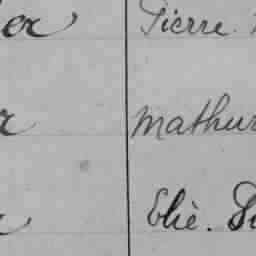 er Pierre
r Mathur
r Elie. Su